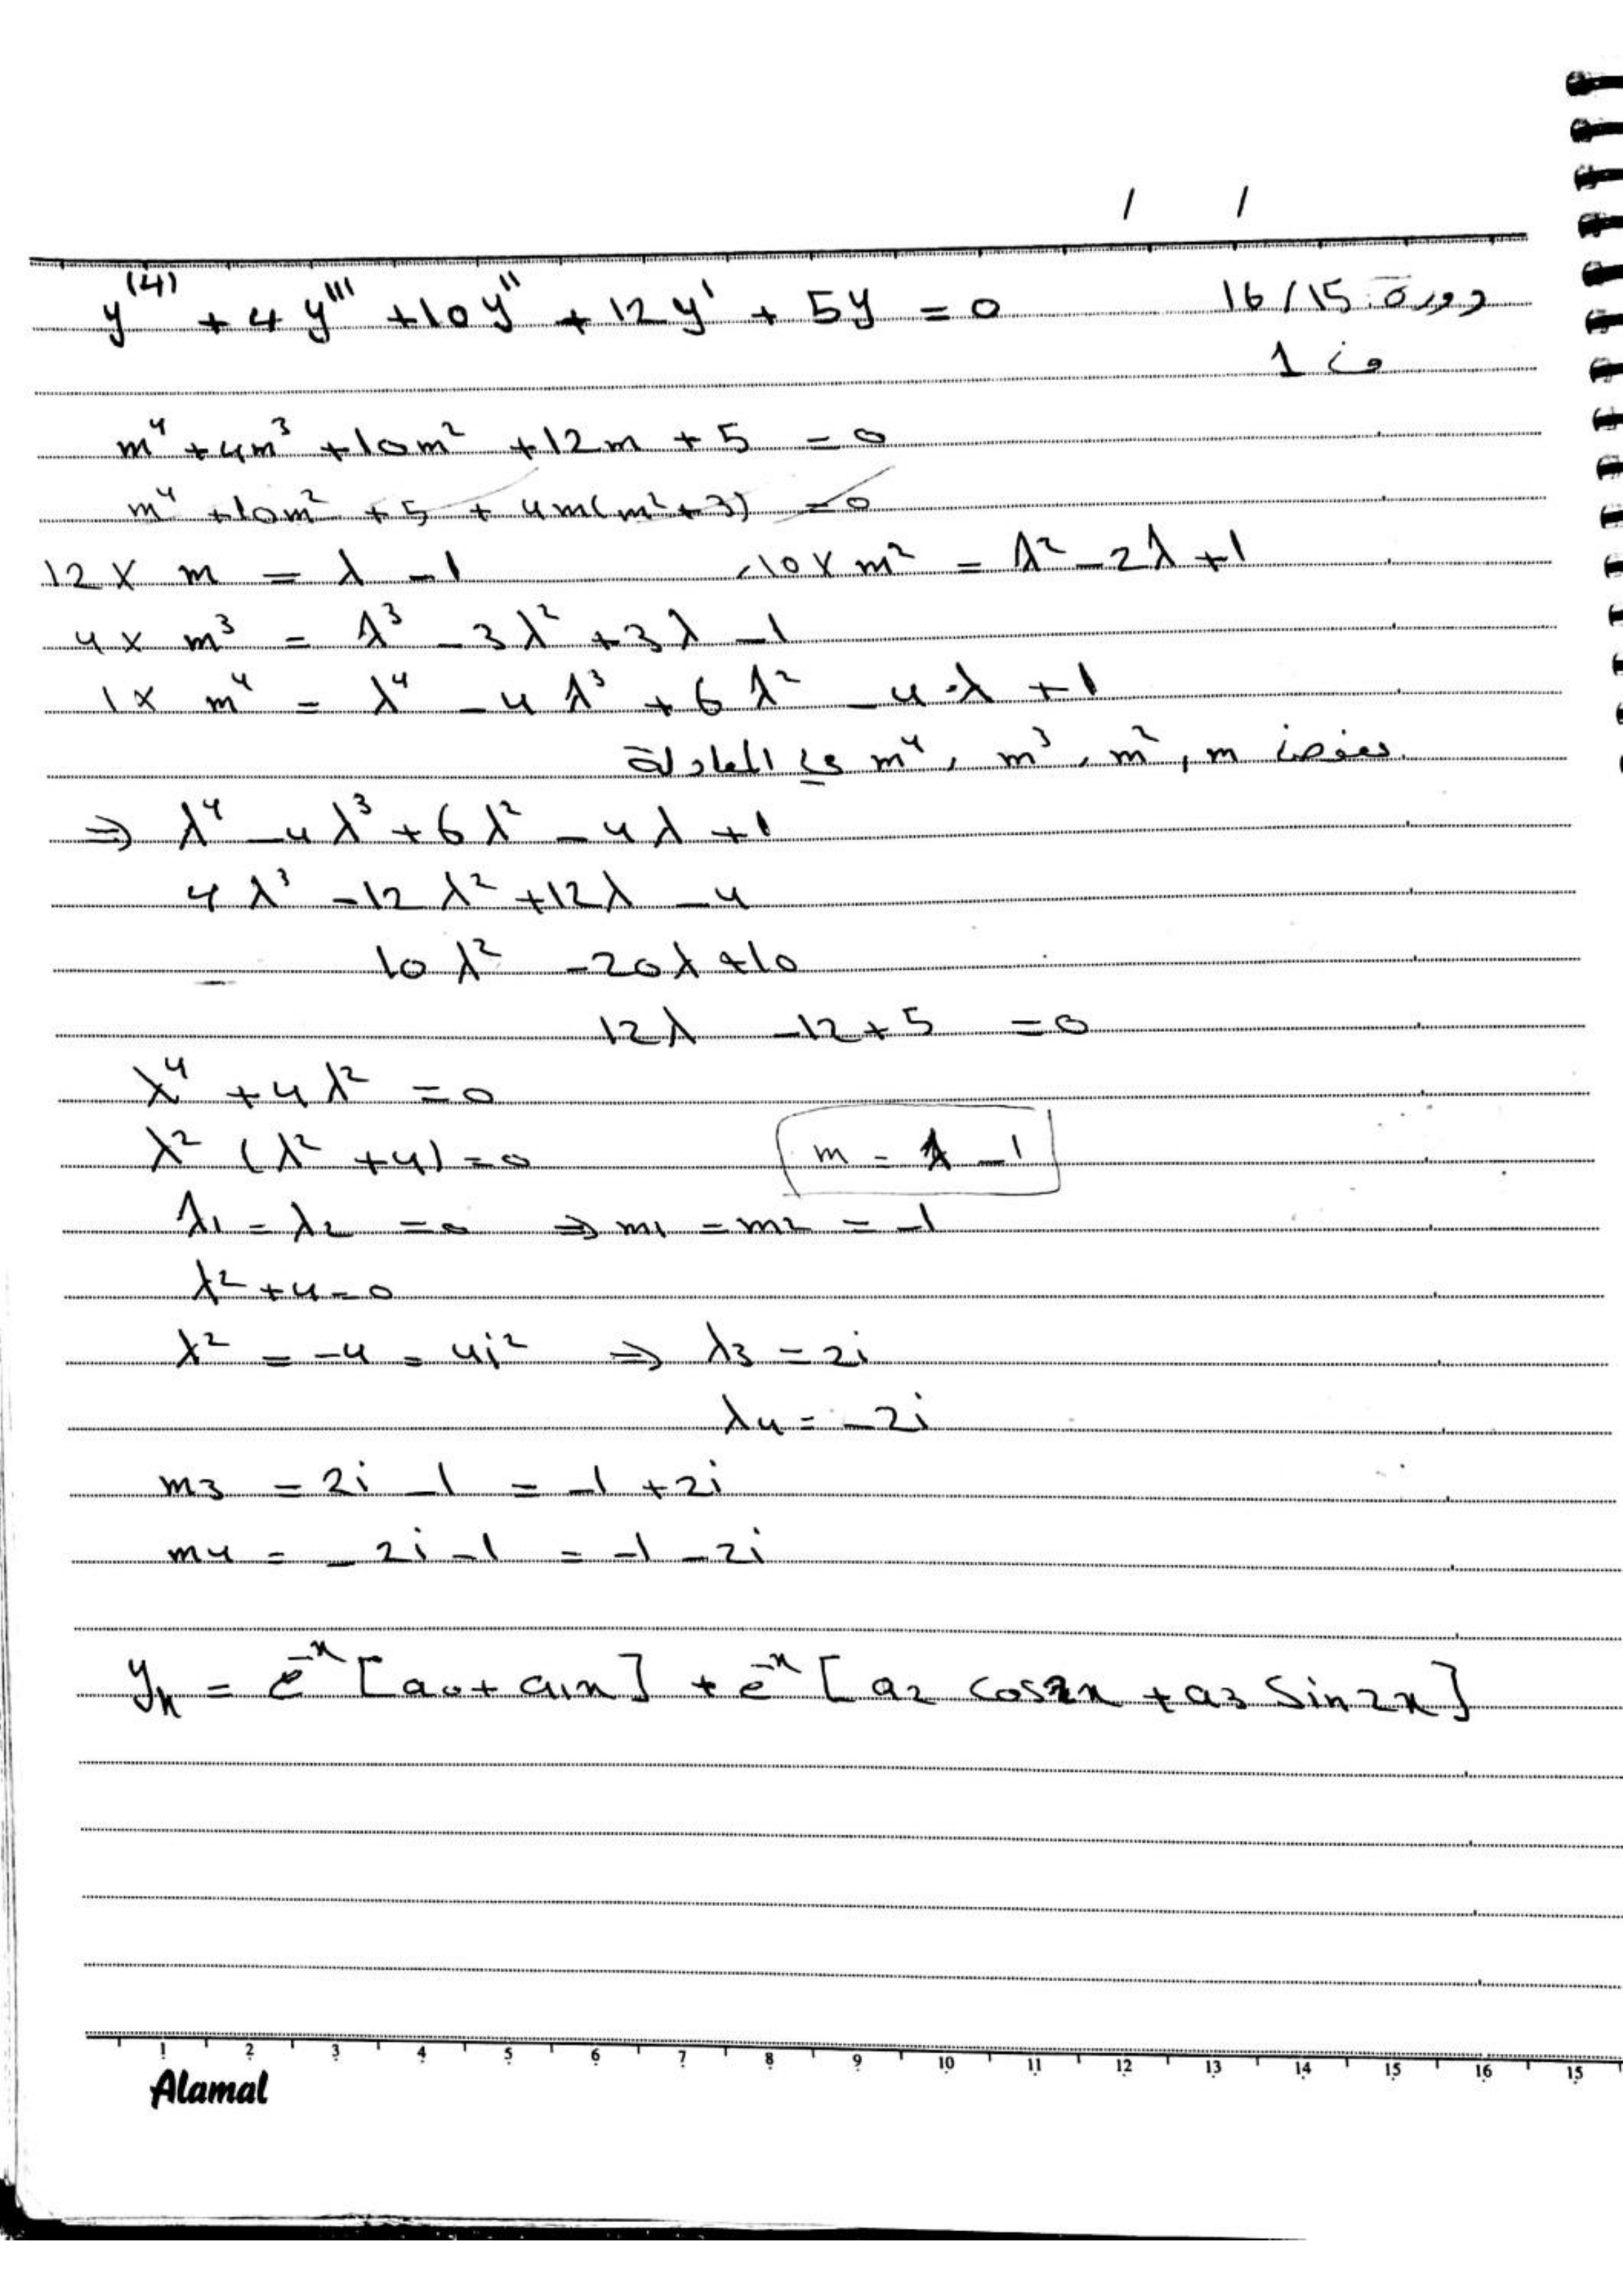 / /
y⁽⁴⁾ + 4y''' + 10y'' + 12y' + 5y = 0 دورة 16/15
ف 1
m⁴ + 4m³ + 10m² + 12m + 5 = 0
m⁴ + 10m² + 5 + 4m(m² + 3) = 0
12 × m = λ - 1 10 × m² = λ² - 2λ + 1
4 × m³ = λ³ - 3λ² + 3λ - 1
1 × m⁴ = λ⁴ - 4λ³ + 6λ² - 4λ + 1
نعوض m⁴, m³, m², m في المعادلة
⇒ λ⁴ - 4λ³ + 6λ² - 4λ + 1
4λ³ - 12λ² + 12λ - 4
10λ² - 20λ + 10
12λ - 12 + 5 = 0
λ⁴ + 4λ² = 0
λ² (λ² + 4) = 0 m = λ - 1
λ1 = λ2 = 0 ⇒ m1 = m2 = -1
λ² + 4 = 0
λ² = -4 = 4i² ⇒ λ3 = 2i
λ4 = -2i
m3 = 2i - 1 = -1 + 2i
m4 = -2i - 1 = -1 - 2i
yh = e⁻ˣ [a0 + a1x] + e⁻ˣ [a2 cos2x + a3 sin2x]
1 2 3 4 5 6 7 8 9 10 11 12 13 14 15 16 15
Alamal